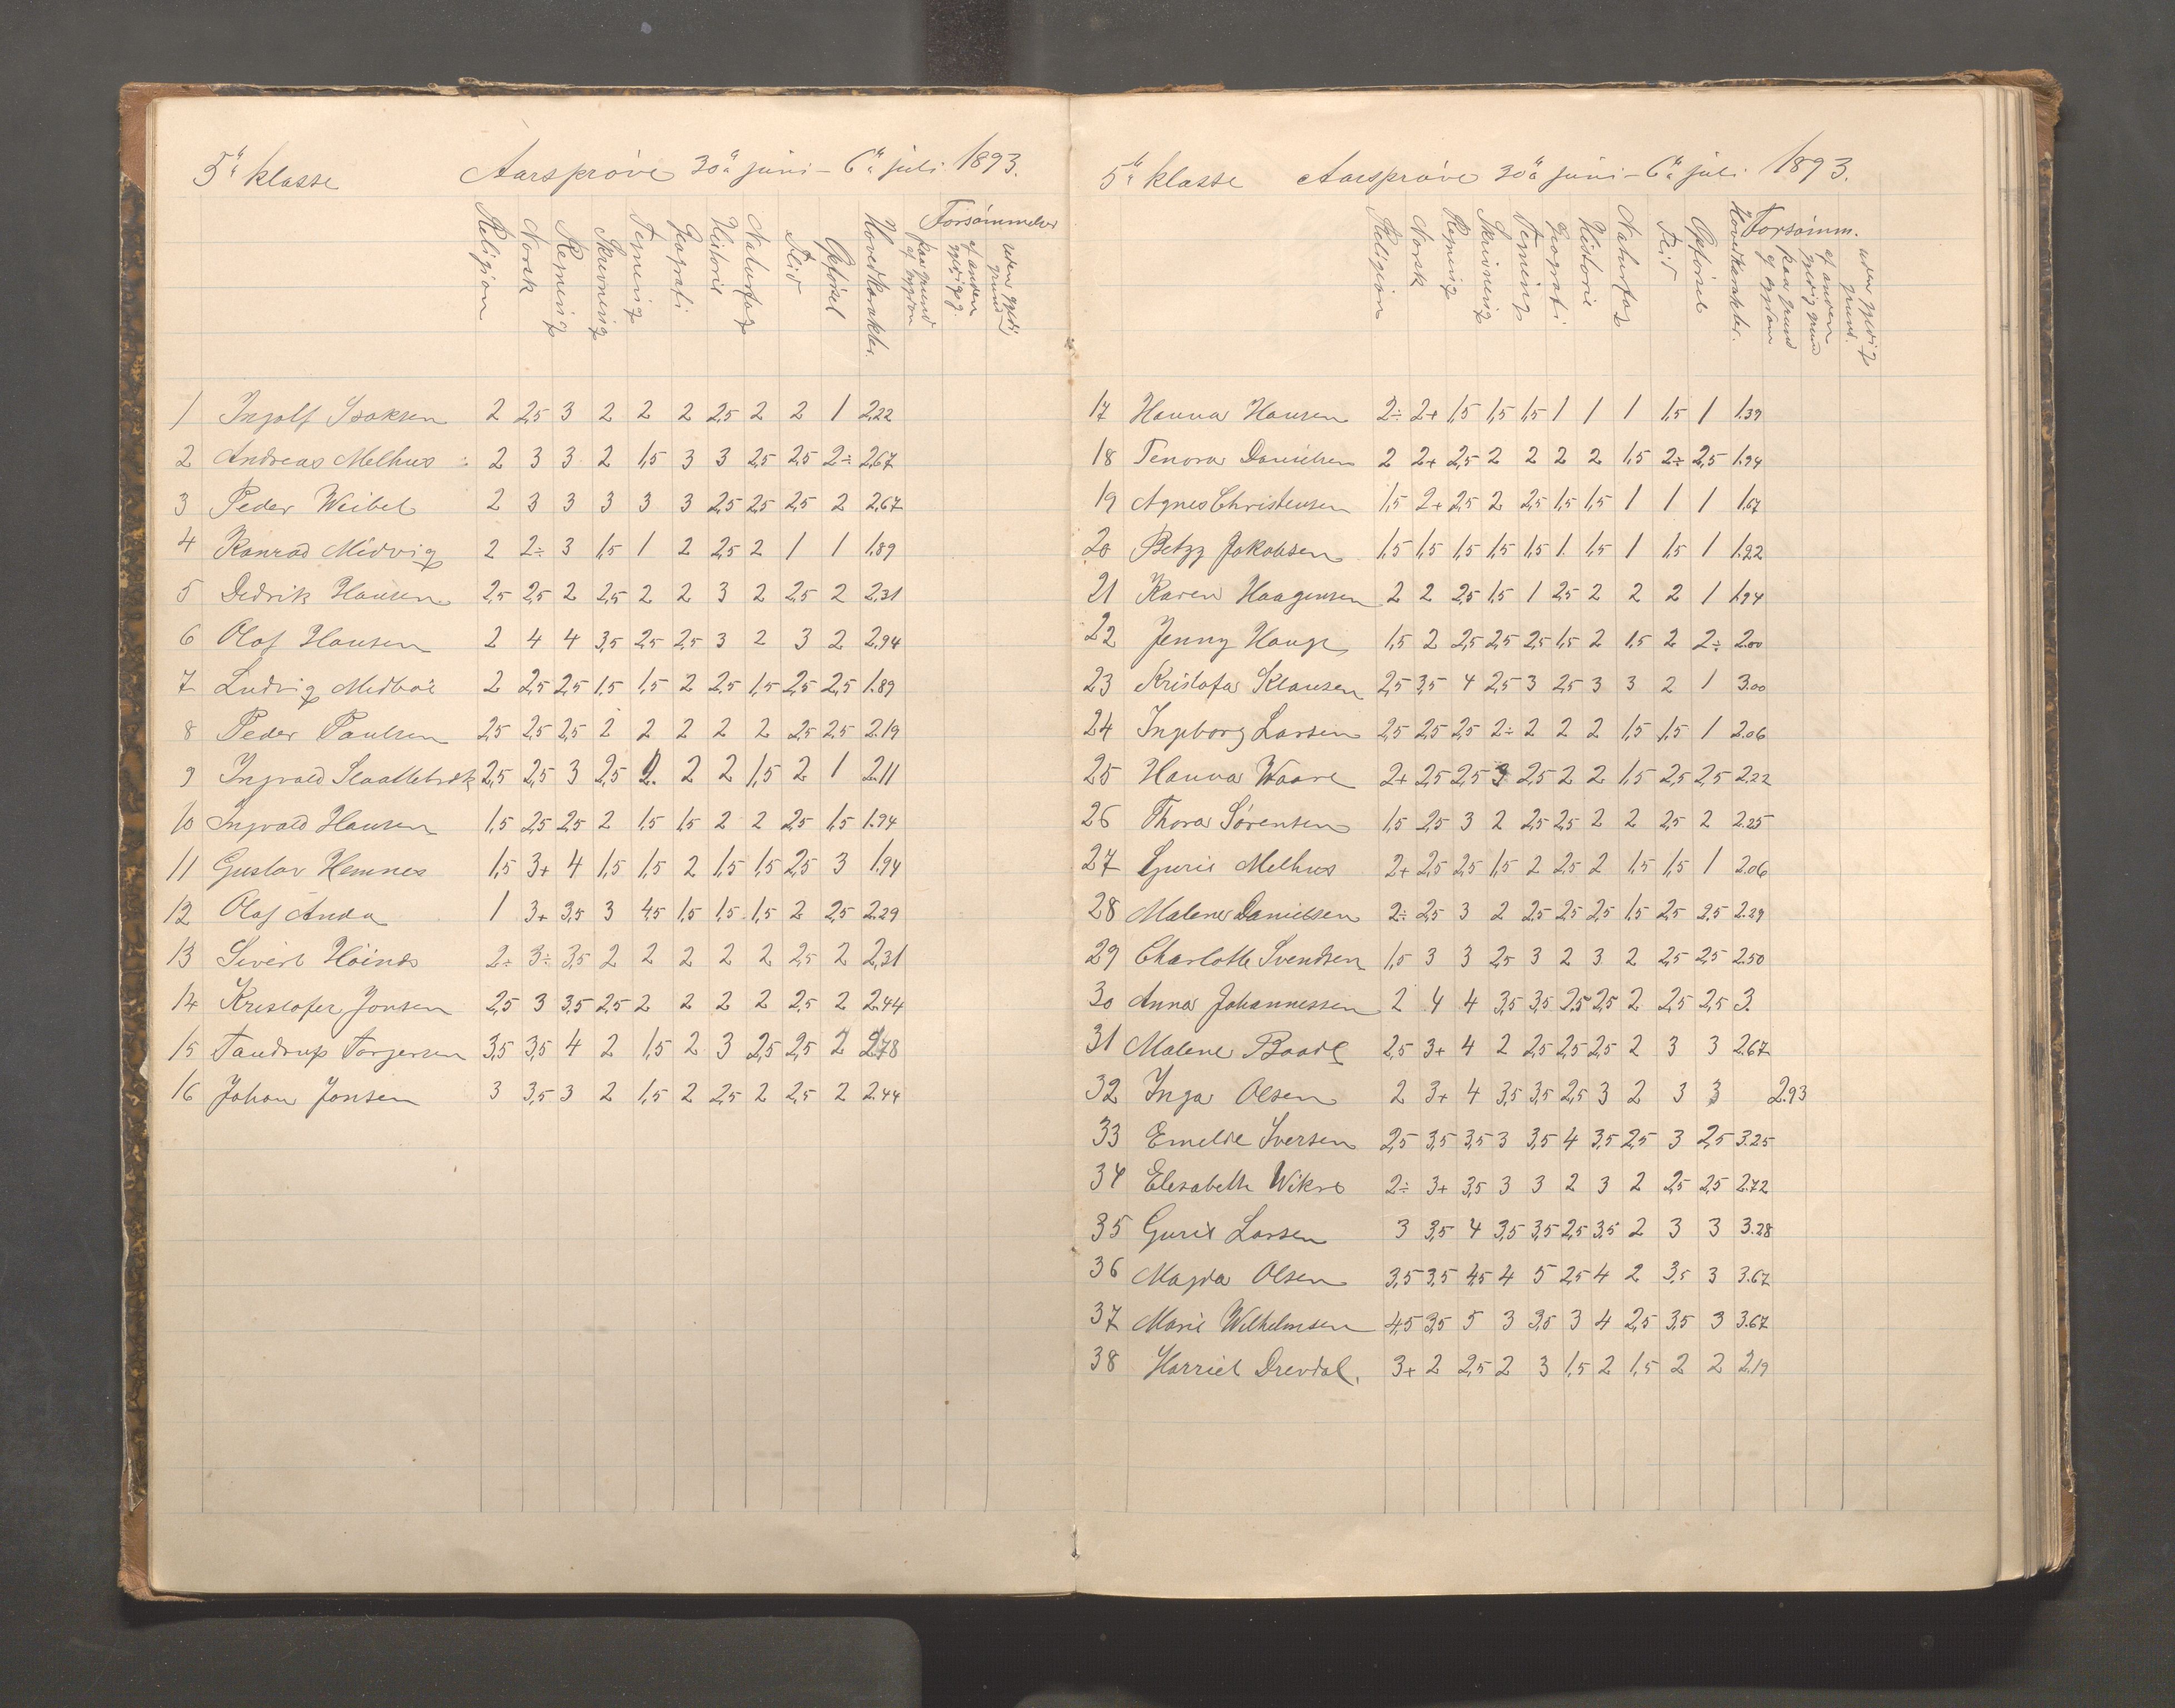 5te klasse Aarsprøve 30te juni – 6te juli 1893.
Religion Norsk Regning Skrivning Tegning Geografi Historie Naturfag Flid Opførsel Hovedkarakter. Forsømmelser
paa grund af sygdom af anden gyldig g. uden gyldig grund
1 Ingolf Isaksen 2 2,5 3 2 2 2 2,5 2 2 1 2,22
2 Andreas Melhus 2 3 3 2 1,5 3 3 2,5 2,5 2÷ 2,67
3 Peder Weibel 2 3 3 3 3 3 2,5 2,5 2,5 2 2,67
4 Konrad Midvig 2 2÷ 3 1,5 1 2 2,5 2 1 1 1.89
5 Dedrik Hansen 2,5 2,5 2 2,5 2 2 3 2 2,5 2 2,31
6 Olaf Hansen 2 4 4 3,5 2,5 2,5 3 2 3 2 2.94
7 Ludvig Medbøe 2 2,5 2,5 1,5 1,5 2 2,5 1,5 2,5 2,5 1.89
8 Peder Paulsen 2,5 2,5 2,5 2 2 2 2 2 2,5 2,5 2.19
9 Ingvald 2,5 2,5 3 2,5 2. 2 2 1,5 2 1 2.11
10 Ingvald Hansen 1,5 2,5 2,5 2 1,5 1,5 2 2 2,5 1,5 1.94
11 Gustav Hemnes 1,5 3+ 4 1,5 1,5 2 1,5 1,5 2,5 3 1.94
12 Olaf Anda 1 3+ 3,5 3 4,5 1,5 1,5 1,5 2 2,5 2.29
13 Sivert Høines 2÷ 3÷ 3,5 2 2 2 2 2 2,5 2 2,31
14 Kristofer Jonsen 2,5 3 3,5 2,5 2 2 2 2 2,5 2 2.44
15 Tandrup Torgersen 3,5 3,5 4 2 1,5 2 3 2,5 2,5 2 2.78
16 Johan Jonsen 3 3,5 3 2 1,5 2 2,5 2 2,5 2 2.44
5te klasse Aarsprøve 30te juni – 6te juli 1893.
Religion Norsk Regning Skrivning Tegning Geografi Historie Naturfag Flid Opførsel Hovedkarakter. Forsømm.
paa grund af sygdom af anden gyldig grund uden gyldig grund.
17 Hanna Hansen 2÷ 2+ 1,5 1,5 1,5 1 1 1 1,5 1 1.39
18 Tenora Danielsen 2 2+ 2,5 2 2 2 2 1,5 2÷ 2,5 1.94
19 Agnes Christensen 1,5 2+ 2,5 2 2,5 1,5 1,5 1 1 1 1.67
20 Betzy Jakobsen 1,5 1,5 1,5 1,5 1,5 1 1,5 1 1,5 1 1.22
21 Karen Haagensen 2 2 2,5 1,5 1 2,5 2 2 2 1 1.94
22 Jenny Hauge 1,5 2 2,5 2,5 2,5 1,5 2 1,5 2 2÷ 2.00
23 Kristofa Klausen 2,5 3,5 4 2,5 3 2,5 3 3 2 1 3.00
24 Ingeborg Larsen 2,5 2,5 2,5 2÷ 2 2 2 1,5 1,5 1 2.06
25 Hanna Waare 2+ 2,5 2,5 3 2,5 2 2 1,5 2,5 2,5 2.22
26 Thora Sørensen 1,5 2,5 3 2 2,5 2,5 2 2 2,5 2 2.25
27 Gurie Melhus 2+ 2,5 2,5 1,5 2 2,5 2 1,5 1,5 1 2.06
28 Malene Danielsen 2÷ 2,5 3 2 2,5 2,5 2,5 1,5 2,5 2,5 2.29
29 Charlotte Svendsen 1,5 3 3 2,5 3 2 3 2 2,5 2,5 2.50
30 Anna Johannessen 2 4 4 3,5 3,5 2,5 2,5 2 2,5 2,5 3.
31 Malene Baade 2,5 3+ 4 2 2,5 2,5 2,5 2 3 3 2.67
32 Inga Olsen 2 3+ 4 3,5 3,5 2,5 3 2 3 3 2.93
33 Emelie Iversen 2,5 3,5 3,5 3 3,5 4 3,5 2,5 3 2,5 3.25
34 Elesabeth Wikre 2÷ 3+ 3,5 3 3 2 3 2 2,5 2,5 2.72
35 Gurie Larsen 3 3,5 4 3,5 3,5 2,5 3,5 2 3 3 3.28
36 Magda Olsen 3,5 3,5 4,5 4 5 2,5 4 2 3,5 3 3.67
37 Marie Wilhelmsen 4,5 3,5 5 3 3,5 3 4 2,5 3,5 3 3.67
38 Harriet Drevdal. 3+ 2 2,5 2 3 1,5 2 1,5 2 2 2.19